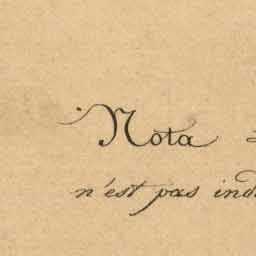 Nota
n'est pas ind